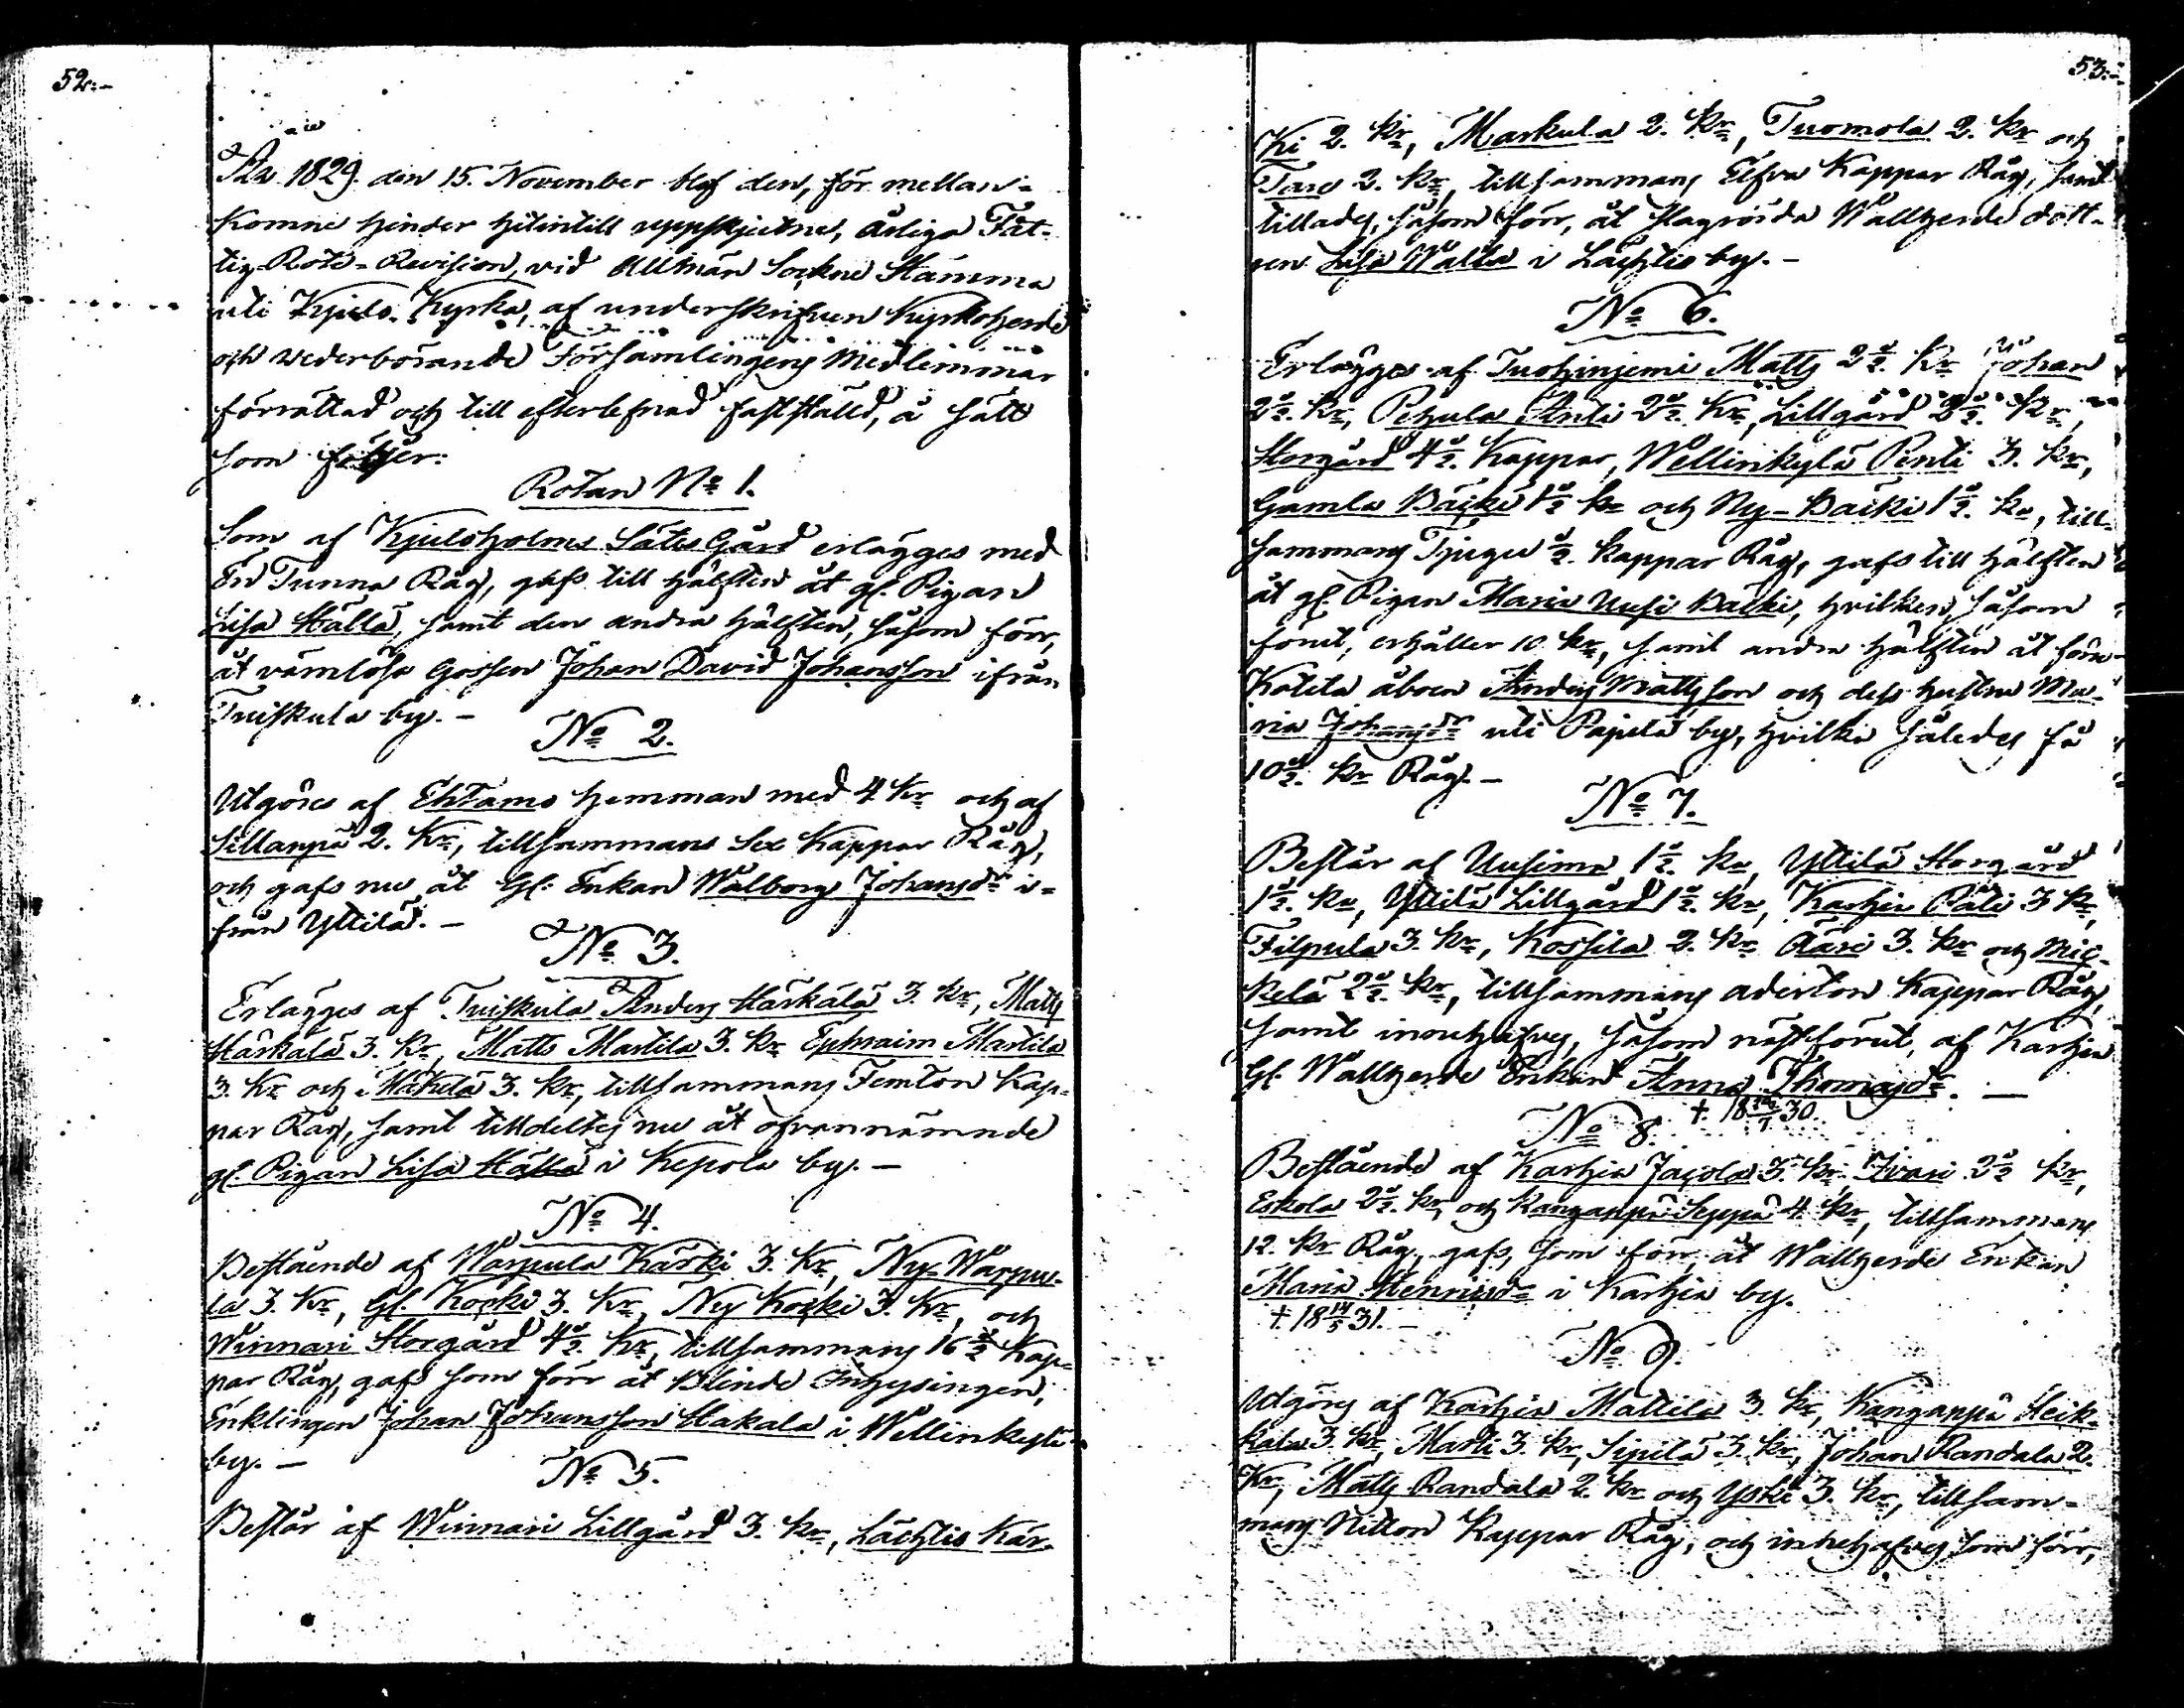 52.-
År 1829 den 15. November blef den, för mellan-
komne hinder hitintill uppskjutne, årliga Fat-
tig-Rote-Revision, vid Allmän Sockne Stämma
uti Kjulo Kyrka, af underskrifven Kyrkoherde
och wederbörande Församlingens Medlemmar
förrättad och till efterlefnad fastställd, å sätt
som följer:
Rotan No 1.
Som af Kjuloholms Sätes Gård erlägges med
En Tunna Råg, gafs till hälften åt gl. Pigan
Lisa Hällä, samt den andra hälften, såsom förr,
åt vämlösa Gossen Johan David Johansson ifrån
Tuiskula by. -
No 2.
Utgöres af Ehtamo hemman med 4 kr och af
Sillanpä 2. Kr, tillsammans Sex Kappar Råg,
och gafs nu åt Gl. Enkan Walborg Johansdr i-
från Yttilä. -
No 3.
Erlägges af Tuiskula Anders Härkälä 3. Kr, Matts
Härkälä 3. Kr, Matts Martila 3. Kr Ephraim Martila
3. Kr och Mäkelä 3. kr, tillsammans Femton Kap-
par Råg, samt tilldeltes nu åt ofvannämnde
gl. Pigan Lisa Hällä i Kepola by. -
No 4.
Bestående af Warpula Kärki 3. Kr, Ny-Warpu-
la 3. Kr, Gl. Koski 3. Kr, Ny Koski 3. Kr, och
Winnari Storgård 4½. Kr, tillsammans 16½ Kap-
par Råg, gafs som förr åt Blinde Inhysingen,
Enklingen Johan Johansson Hakala i Wellinkylä
by. -
No 5.
Består af Winnari Lillgård 3. kr, Lächtis Kär-
53.-
ki 2. kr, Markula 2. kr, Tuomola 2. kr och
Tare 2. kr, tillsammans Elfva Kappar Råg, samt
tillades, såsom förr, åt slagrörda Wallhjerde dott-
ren Lisa Walla i Lächtis by. -
No 6.
Erlägges af Tuohiniemi Matts 2½. Kr Johan
2½. kr, Pehula Anti 2½. Kr, Lillgård 2½. kr,
Storgård 4½. Kappar, Wellinkylä Penti 3. kr,
Gamla Bäcki 1½ kr och Ny-Bäcki 1½. kr, till-
sammans Tjugu ½. kappar Råg, gafs till hälften
åt gl. Pigan Maria Uusi Bäcki, hvilken, såsom
förut, erhåller 10 kr, samt andra hälften åt förra
Katila åboen Anders Mattsson och dess hustru Ma-
ria Johansdr uti Pajula by, hvilka således få
10½. kr Råg. -
No 7.
Består af Uusima 1½. kr, Yttilä Storgård
1½. kr, Yttilä Lillgård 1½. kr, Karhia Päli 3 kr,
Filpula 3. kr, Kossila 2. kr Ääri 3. kr och Mic-
kelä 2½. kr, tillsammans aderton Kappar Råg,
samt innehafves, såsom näst förut, af Karhia
Gl. Wallhjerde Enkan Anna Thomasdr. -
No 8. † 18 30.
Bestående af Karhia Jacola 3. kr Iivari 2½ kr,
Eskola 2½. kr, och Kanganpä Seppä 4 kr, tillsammans
12. kr Råg, gafs, som förr, åt Wallhjerde Enkan
Maria Henricsdr i Karhia by.
† 18 14/5 31. -
No 9.
Utgöres af Karhia Mattila 3. kr, Kanganpä Heik-
kala 3. kr, Marti 3. kr, Sipilä 3. kr, Johan Randala 2.
Kr, Matts Randala 2. kr och Yski 3. kr, tillsam-
mans Nitton Kappar Råg, och innehafves som förr,